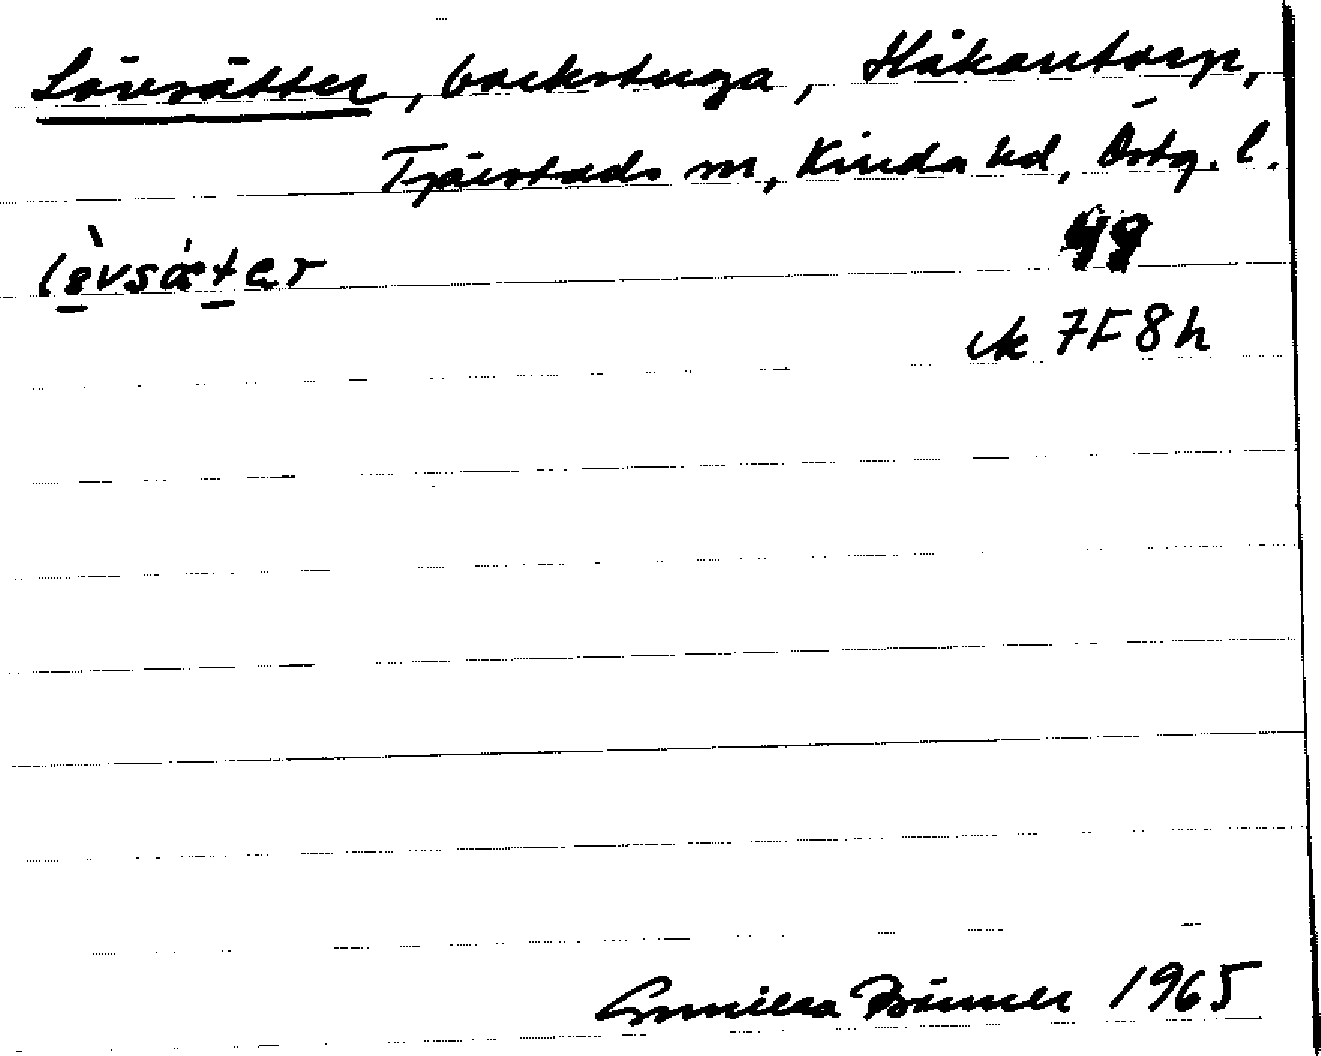 Lövsätter, backstuga, Håkantorp,
Tjärstads sn, Kinda hd, Östg. l.
lövsæter 48
ek 7F8h
Gunilla 1965